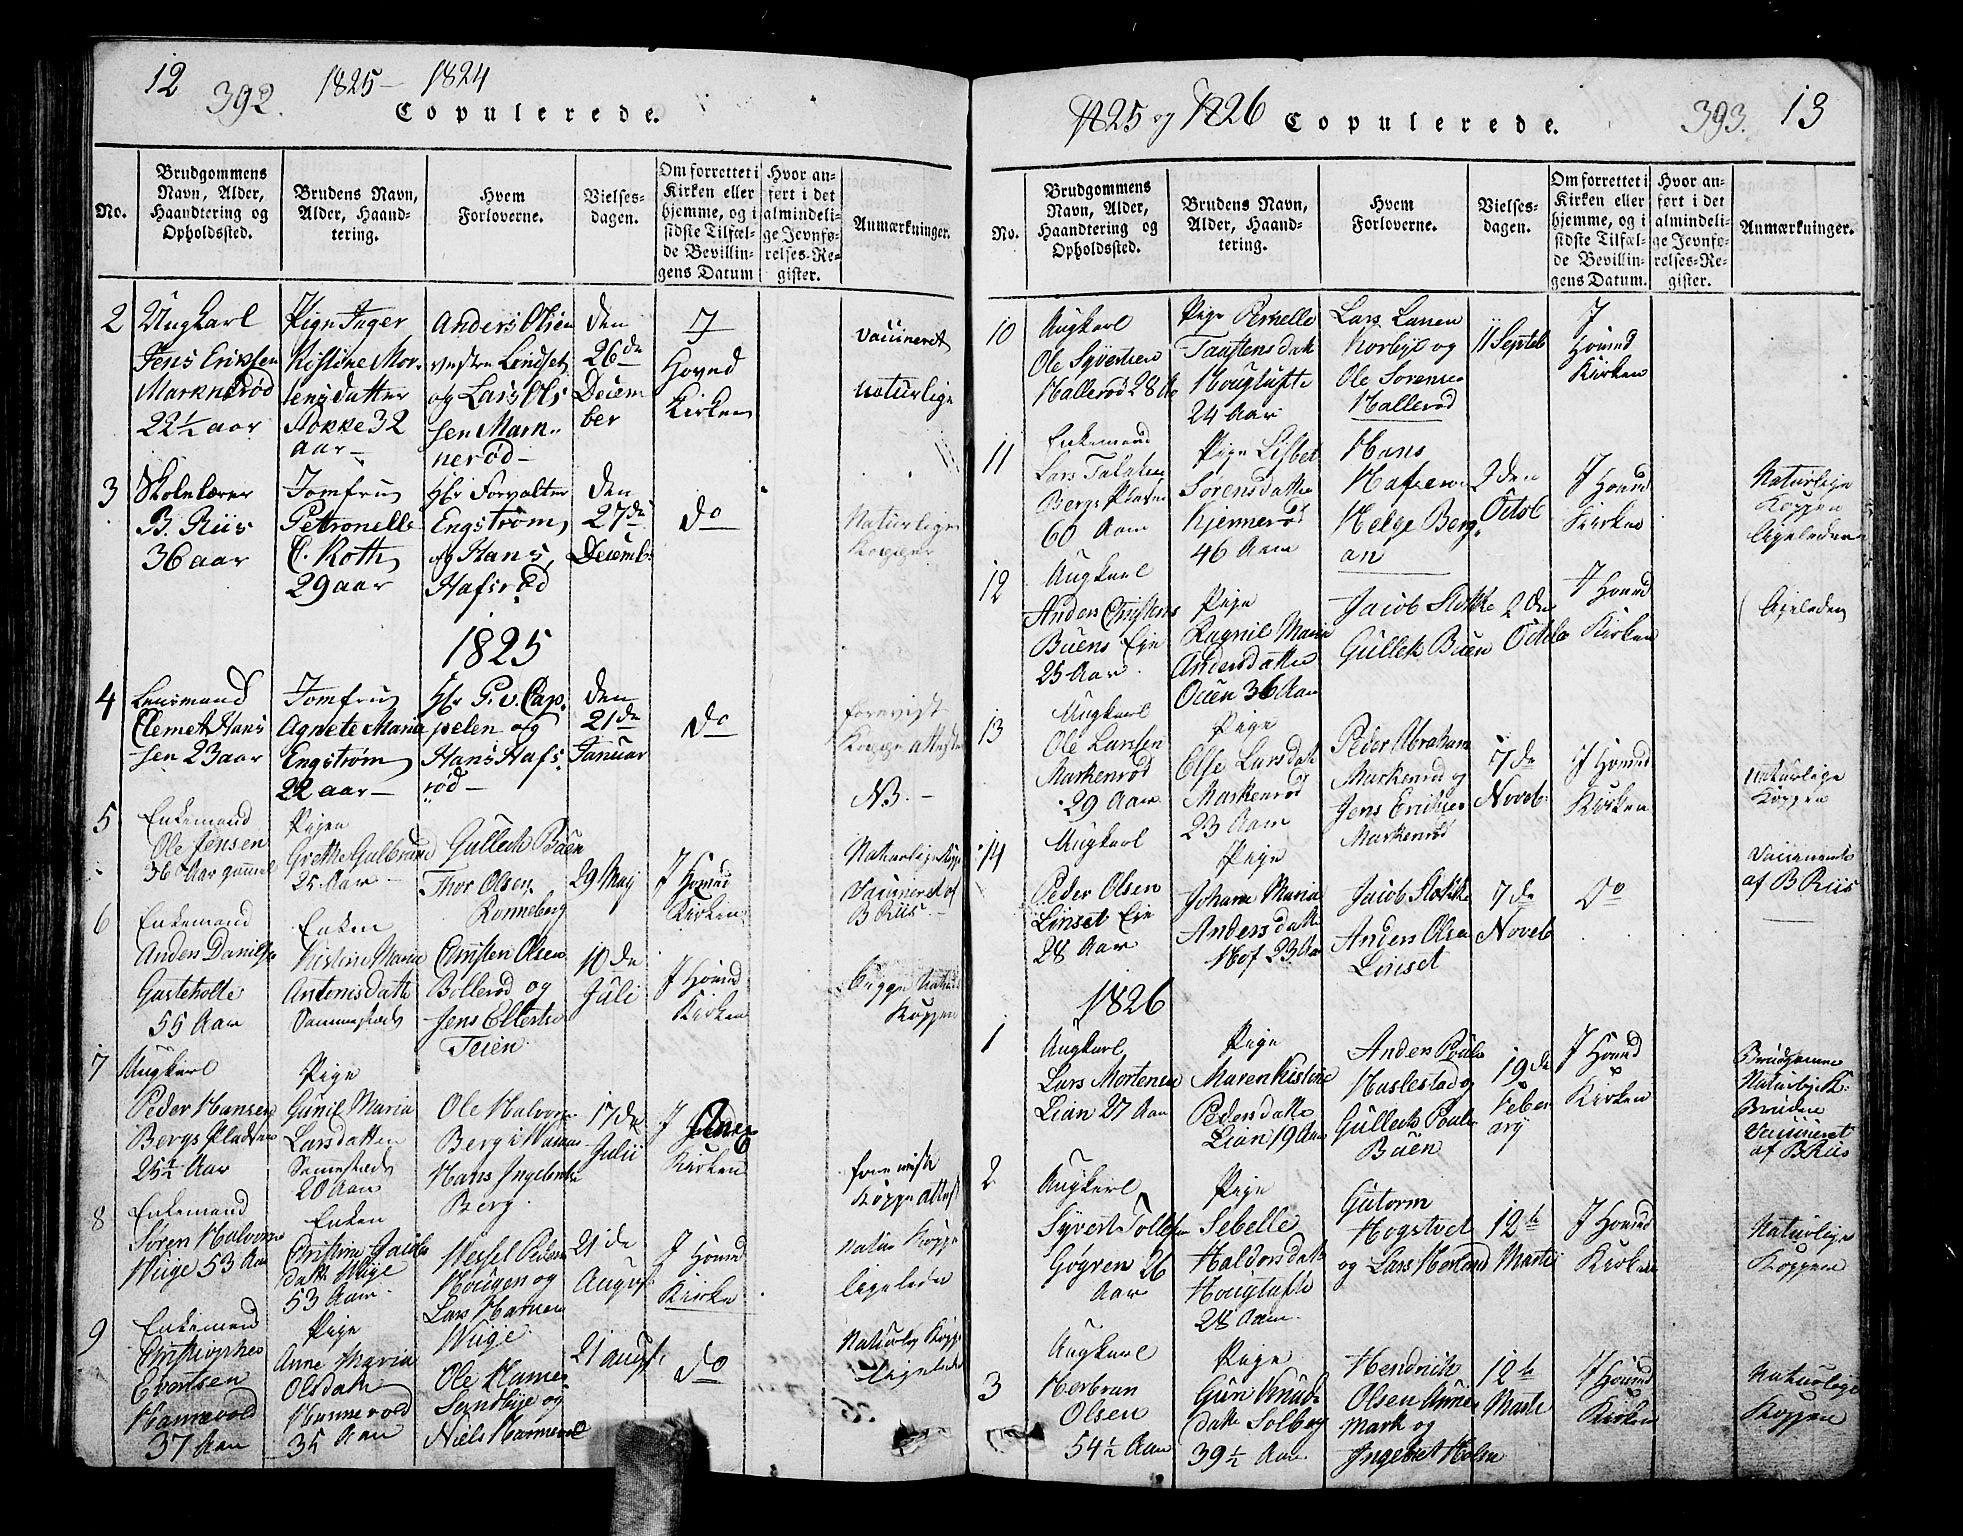 12
392.
1825 — 1824
Copulerede.
No.
Brudgommens
Navn, Alder,
Haandtering og
Opholdssted.
Brudens Navn,
Alder, Haand-
tering.
Hvem
Forloverne.
Vielses-
dagen.
Om forrettet i
Kirken eller
hjemme, og i
sidste Tilfæl-
de Bevillin-
gens Datum
Hvor an-
ført i det
almindeli-
ge Jevnfø-
relses-Re-
gister.
Anmærkninger.
2
Ungkarl
Jens Eriksen
Marknerød
22½ aar
Pige Inger
Kistine Mor-
tensdatter
Stokke 32
aar —
Anders Olsen
vestre Lindset
og Lars Ols
sen Mark-
nerød —
den
26de
Decem
ber
I
Hoved
Kirken
Vaccineret
naturlige
3
Skolelærer
B. Riis
36 aar
Jomfru
Petronelle
C. Roth
29 aar
Hr Forvalter
Engstrøm
og Hans
Hafsrød
den
27de
Decemb.
do
Naturlige
Kopper
1825
4
Lensmand
Clemet Hans
sen 23 aar
Jomfru
Agnete Maria
Engstrøm
22 aar —
Hr P. v. Cap-
pelen og
Hans Hafs
rød —
den
21de
Januar
do
forevist
Koppe attest
NB. —
5
Enkemand
Ole Jensen
36 Aar gammel
Pigen
Grethe Gulbrand
25 Aar —
Gulleck Büen
Thor Olsen
Ronneberg
29 May
J Hovud
Kirken
Naturlige Kop
Vaccineret af
B Riis. —
6
Enkemand
Anders Danils
Gasteholte
55 Aar
Enken
Kistine Maria
Antonisdatte
Sammesteds
Christen Olsen
Bollerød og
Jens Ellertsen
Teien
10 de
Juli
J Hovud
Kirken
Koppen
7
Ungkarl
Peder Hansen
Bergs Pladsen
25½ Aar
Pige
Gunil Maria
Larsdatter
Sammesteds
20 Aar
Ole Halvorsen
Berg i
Hans Ingebretsen
Berg
17 de
Julii
J
Kirken
forevist
Koppe attest
8
Enkemand
Søren Halvorsen
Wiige 53 Aar
Enken
Christine Jacobs
datte Wige
53 Aar
Wessel Peders
Hougen og
Lars Hansen
Wiige
21 de
August
J Hovud
Kirke
Natur Koppe
ligeleden
9
Enkemand
Christopher
Evertsen
Hannevold
37 Aar
Pige
Anne Maria
Olsdatte
Hannevold
35 Aar
Ole Hansen
Sandbye og
Niels Hannevold
21 August
do
Naturlig Kopp
Ligeleden
1825 og 1826
Copulerede.
393.
13
No.
Brudgommens
Navn, Alder,
Haandtering og
Opholdssted.
Brudens Navn,
Alder, Haand-
tering.
Hvem
Forloverne.
Vielses-
dagen.
Om forrettet i
Kirken eller
hjemme, og i
sidste Tilfæl-
de Bevillin-
gens Datum.
Hvor an-
ført i det
almindeli-
ge Jevnfø-
relses-Re-
gister.
Anmærkninger.
10
Ungkarl
Ole Syvertsen
Hallerød 28 Aar
Pige Pernelle
Taastensdatt
Hougtufte
24 Aar
Lars Larsen
Korbye og
Ole Sorensen
Hallerød
11 Septeb
J
Hovud
Kirken
11
Enkemand
Lars
Bergs Pladsen
60 Aar
Pige Lisbet
Sorensdatte
Kjennerød
46 Aar
Hans
Hafsrod
Helge Berg-
an
2 den
Octob
J Hovud
Kirken
Naturlige
Koppen
Ligeleden
12
Ungkarl
Anders Christens
Buens Eje
25 Aar
Pige
Ragnil Maria
Andersdatte
Ouen 36 Aar
Jacob Stokke
Gulleck Buen
2 den
Octob
J Hovud
Kirken
Ligeleden
13
Ungkarl
Ole Larssen
Markenrød
29 Aar
Pige
Else Larsdatt
Markenrød
23 Aar
Peder Abraham
Markenrød og
Jens Eriksen
Markenrød
7 de
Noveb.
J Hovud
Kirken
Naturlige
Koppen
14
Ungkarl
Peder Olsen
Linset Eje
28 Aar
Pige
Johane Maria
Andersdatte
Hof 23 Aar
Jacob Stokke
Anders Olsen
Linset
7 de
Noveb
do
Vaccineret
af B Riis
1826
1
Ungkarl
Lars Mortensen
Lian 27 Aar
Pige
Maren Kistine
Pedersdatte
Lian 19 Aar
Anders Poulsen
Haslestad og
Gulleck Poulsen
Buen
19 de
Feber
arij
J Hovud
Kirken
Brudgomen
Naturlige K:
Bruden
Vaccineret
af B Riis
2
Ungkarl
Syvert Tollefsen
Gogren 26
Aar
Pige
Sebelle
Haldorsdatt
Hougtufte
28 Aar
Gutorm
Hogstvet
og Lars Horland
12 te
Martii
J Hovud
Kirken
Naturlige
Koppene
3
Ungkarl
Herbran
Olsen
54½ Aar
Pige
Guri Knuds
datte Solberg
39½ Aar
Hendrick
Olsen
mark og
Ingebret Holm
12 te
Marti
J Hovud
Kirken
Naturlige
Koppen